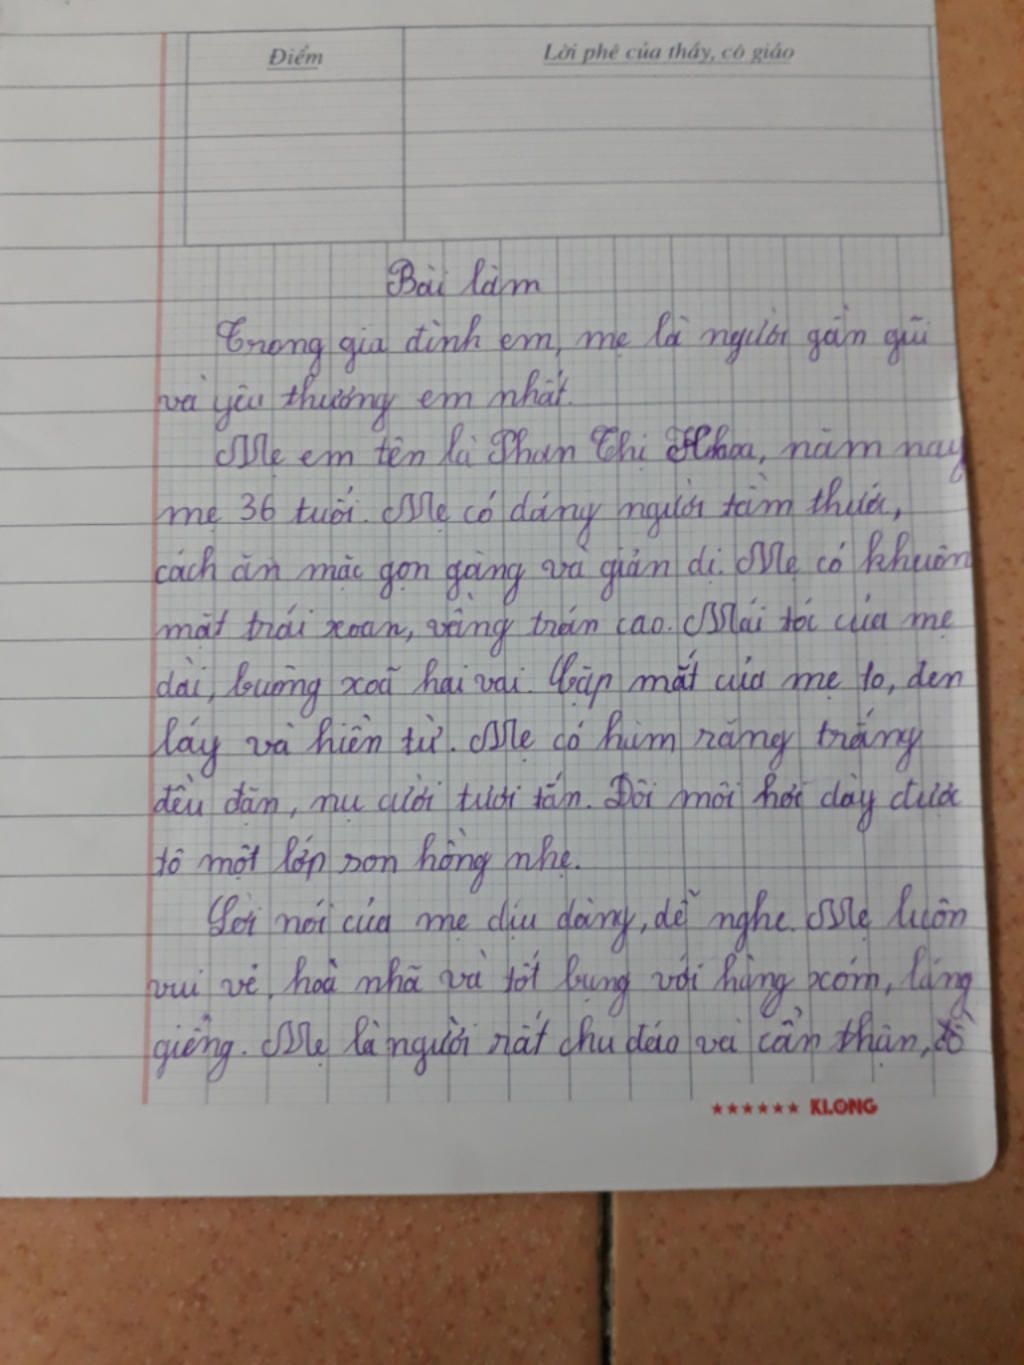 Điểm
Lời phê của thầy, cô giáo
Bài làm
Trong gia đình em, mẹ là người gần gũi
và yêu thương em nhất.
Mẹ em tên là Phan Thị Hoa, năm nay
mẹ 36 tuổi. Mẹ có dáng người tầm thước,
cách ăn mặc gọn gàng và giản dị. Mẹ có khuôn
mặt trái xoan, vầng trán cao. Mái tóc của mẹ
dài, buông xoã hai vai. Cặp mắt của mẹ to, đen
láy và hiền từ. Mẹ có hàm răng trắng
đều đặn, nụ cười tươi tắn. Đôi môi hơi dày được
tô một lớp son hồng nhẹ.
Lời nói của mẹ dịu dàng, dễ nghe. Mẹ luôn
vui vẻ, hoà nhã và tốt bụng với hàng xóm, láng
giềng. Mẹ là người rất chu đáo và cẩn thận, đồ
★★★★★★ KLONG